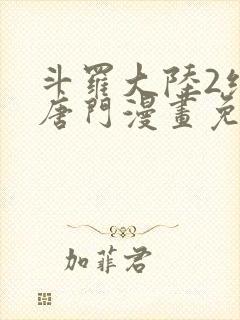 斗羅大陸2
唐門漫畫免
加菲君